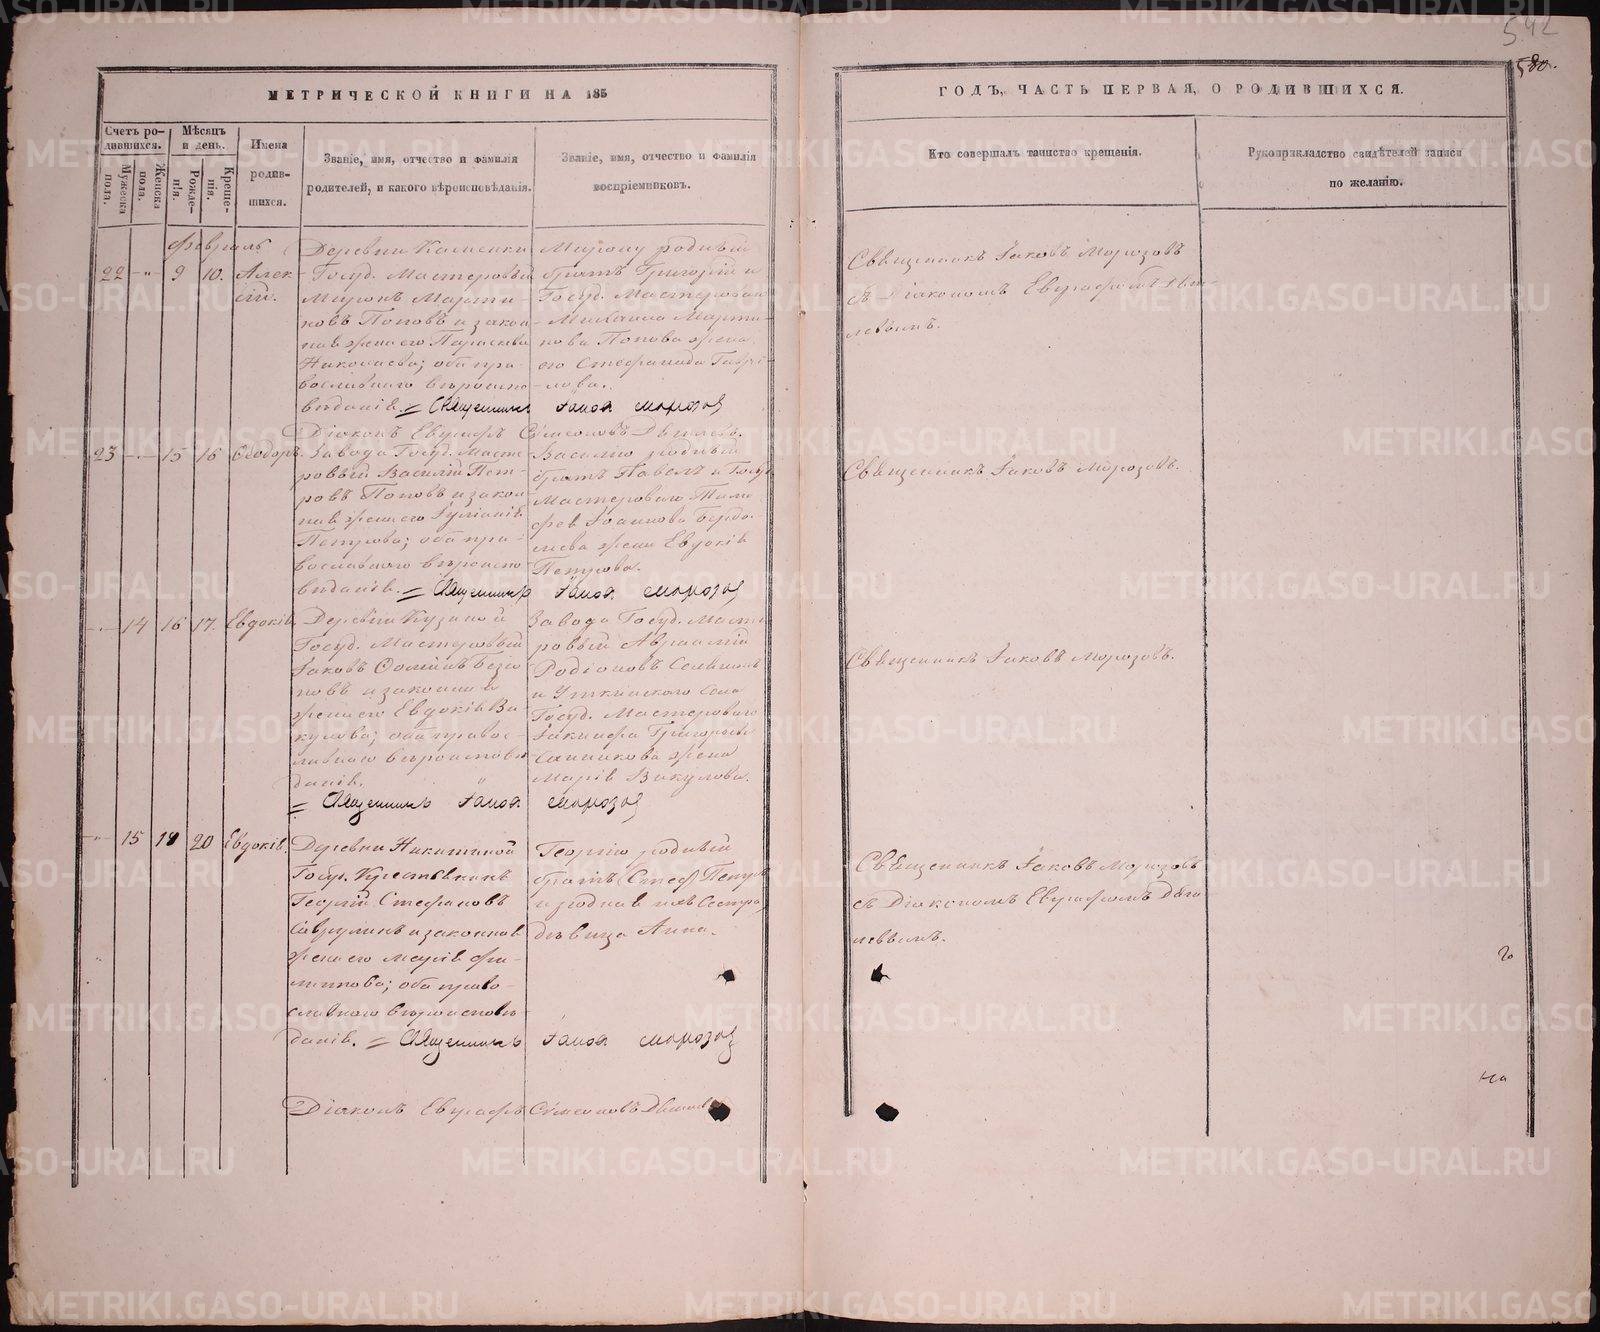 542
580.
МЕТРИЧЕСКОЙ КНИГИ НА 185
ГОДЪ, ЧАСТЬ ПЕРВАЯ, О РОДИВШИХСЯ.
Счетъ ро-
дившихся.
Мужеска пола.
Женска пола.
Мѣсяцъ
и день.
Рожде-
нія.
Креще-
нія.
Имена
родив-
шихся.
Званіе, имя, отчество и фамилія
родителей, и какого вѣроисповѣданія.
Званіе, имя, отчество и фамилія
воспріемниковъ.
Кто совершалъ таинство крещенія.
Рукоприкладство свидѣтелей записи
по желанію.
Февраль
22 - " - 9 10. Алек-
сій.
Деревни Каменки
Госуд. Мастеровый
Миронъ Марти-
новъ Поповъ и закон-
ная жена его Параскева
Николаева; оба пра-
вославнаго вѣроиспо-
вѣданія. = Священникъ Іаков Морозов
Діаконъ Евграфъ Сѵмеоновъ
Мирону родный
братъ Григорій и
Госуд. Мастероваго
Михаила Марти-
нова Попова жена
его Стефанида Гаврі-
лова.
Священникъ Іаковъ Морозовъ
съ Діакономъ Евграфомъ
23 - " - 15 16 Ѳеодоръ.
Завода Госуд. Масте-
ровый Василій Пет-
ровъ Поповъ и закон-
ная жена его Іуліанія
Петрова; оба пра-
вославнаго вѣроиспо-
вѣданія. = Священникъ Іаков Морозов
Василію родный
братъ Павелъ и Госуд.
Мастероваго Тимо-
фея Іоаннова
жена Евдокія
Петрова.
Священникъ Іаковъ Морозовъ.
- " - 14 16 17. Евдокія
Деревни Кузиной
Госуд. Мастеровый
Іаковъ
и законная
жена его Евдокія Ва-
кулова; оба правос-
лавнаго вѣроисповѣ-
данія.
= Священникъ Іаков Морозов
Завода Госуд. Масте-
ровый Авраамій
Родіоновъ
и Уткинскаго Села
Госуд. Мастероваго
Іакинфа Григорьева
Санникова жена
Марія Викулова.
Священникъ Іаковъ Морозовъ.
" 15 18 20 Евдокія.
Деревни Никитиной
Госуд. Крестьянинъ
Георгій Стефановъ
Саврулинъ и законная
жена его Марія Фи-
липова; оба право-
славнаго вѣроисповѣ-
данія. = Священникъ Іаков Морозов
Георгію родный
братъ (Стеф) Петръ
и родная ихъ Сестра,
дѣвица Анна.
Священникъ Іаковъ Морозовъ
съ Діакономъ Евграфомъ
Діаконъ Евграфъ Сѵмеоновъ
го
На
METRIKI.GASO-URAL.RU